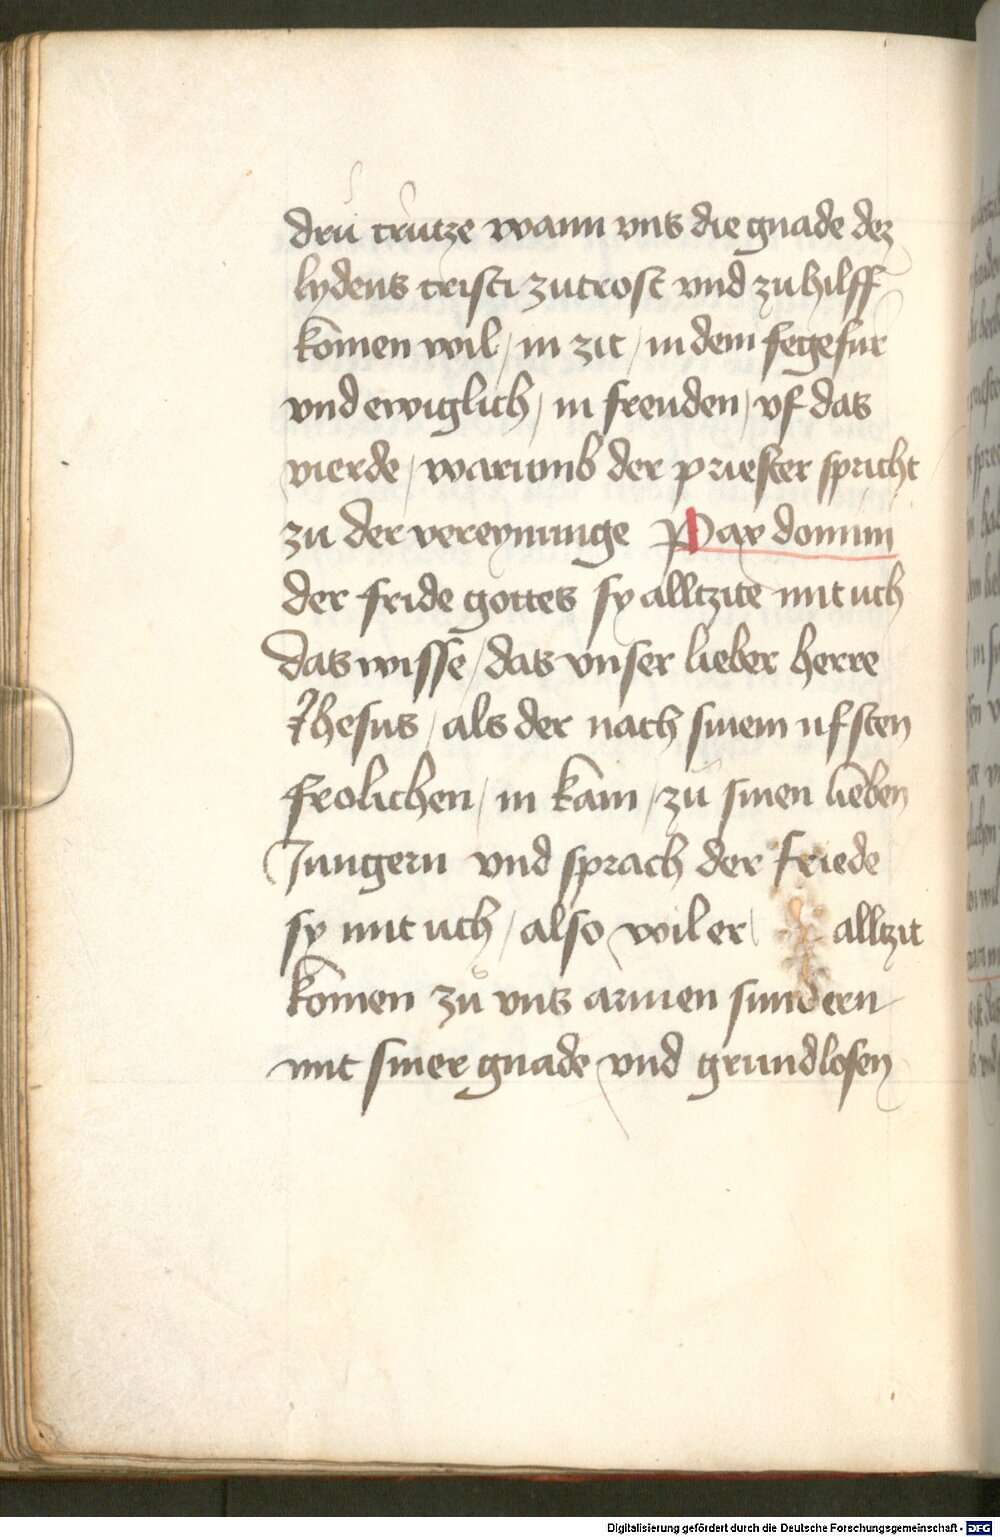 drü crütze wann vns die gnade dez
lydens cristi zu trost vnd zu hilff
kōmen wil / in zit / in dem fegefür
vnd ewiglich / in freuden / vf das
vierde / warumb der priester spricht
zu der vereynunge Pax domini
der fride gottes sy alltzite mit uch
das wissē / das vnser lieber herre
Jhesus / als der nach sinem ufsten
frolichen / in kam / zü sinen liebēn
Jungern vnd sprach der friede
sy mit uch / also wil er alltzit
kōmen zů vns armen sundern
mit siner gnade vnd grundlosen
Digitalisierung gefördert durch die Deutsche Forschungsgemeinschaft - DFG